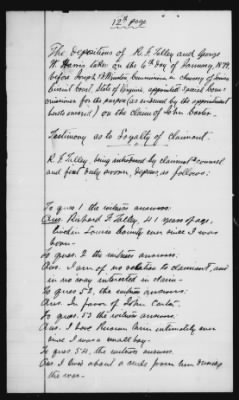 12th page
The depositions of R. F. Talley and George
W. Harris taken on the 6th day of January, 1879,
before Joseph Winston Commissioner in chancery of Louisa
Circuit Court, State of Virginia, appointed special Com-
missioner for the purpose (as evidenced by the appointment
hereto annexed) on the claim of John Carter.
Testimony as to Loyalty of Claimant.
R. F. Talley, being introduced by claimant's counsel
and first duly sworn, deposes as follows:
To ques. 1 the witness answers:
Ans. Richard F. Talley, 41 years of age,
live in Louisa County ever since I was
born.
To ques. 2 the witness answers.
Ans. I am of no relation to claimant, and
in no way interested in claim.
To ques. 52, the witness answers:
Ans. In favor of John Carter.
To ques. 53 the witness answers:
Ans. I have known him intimately ever
since I was a small boy.
To ques. 54, the witness answers.
Ans. I lived about a mile from him during
the war.